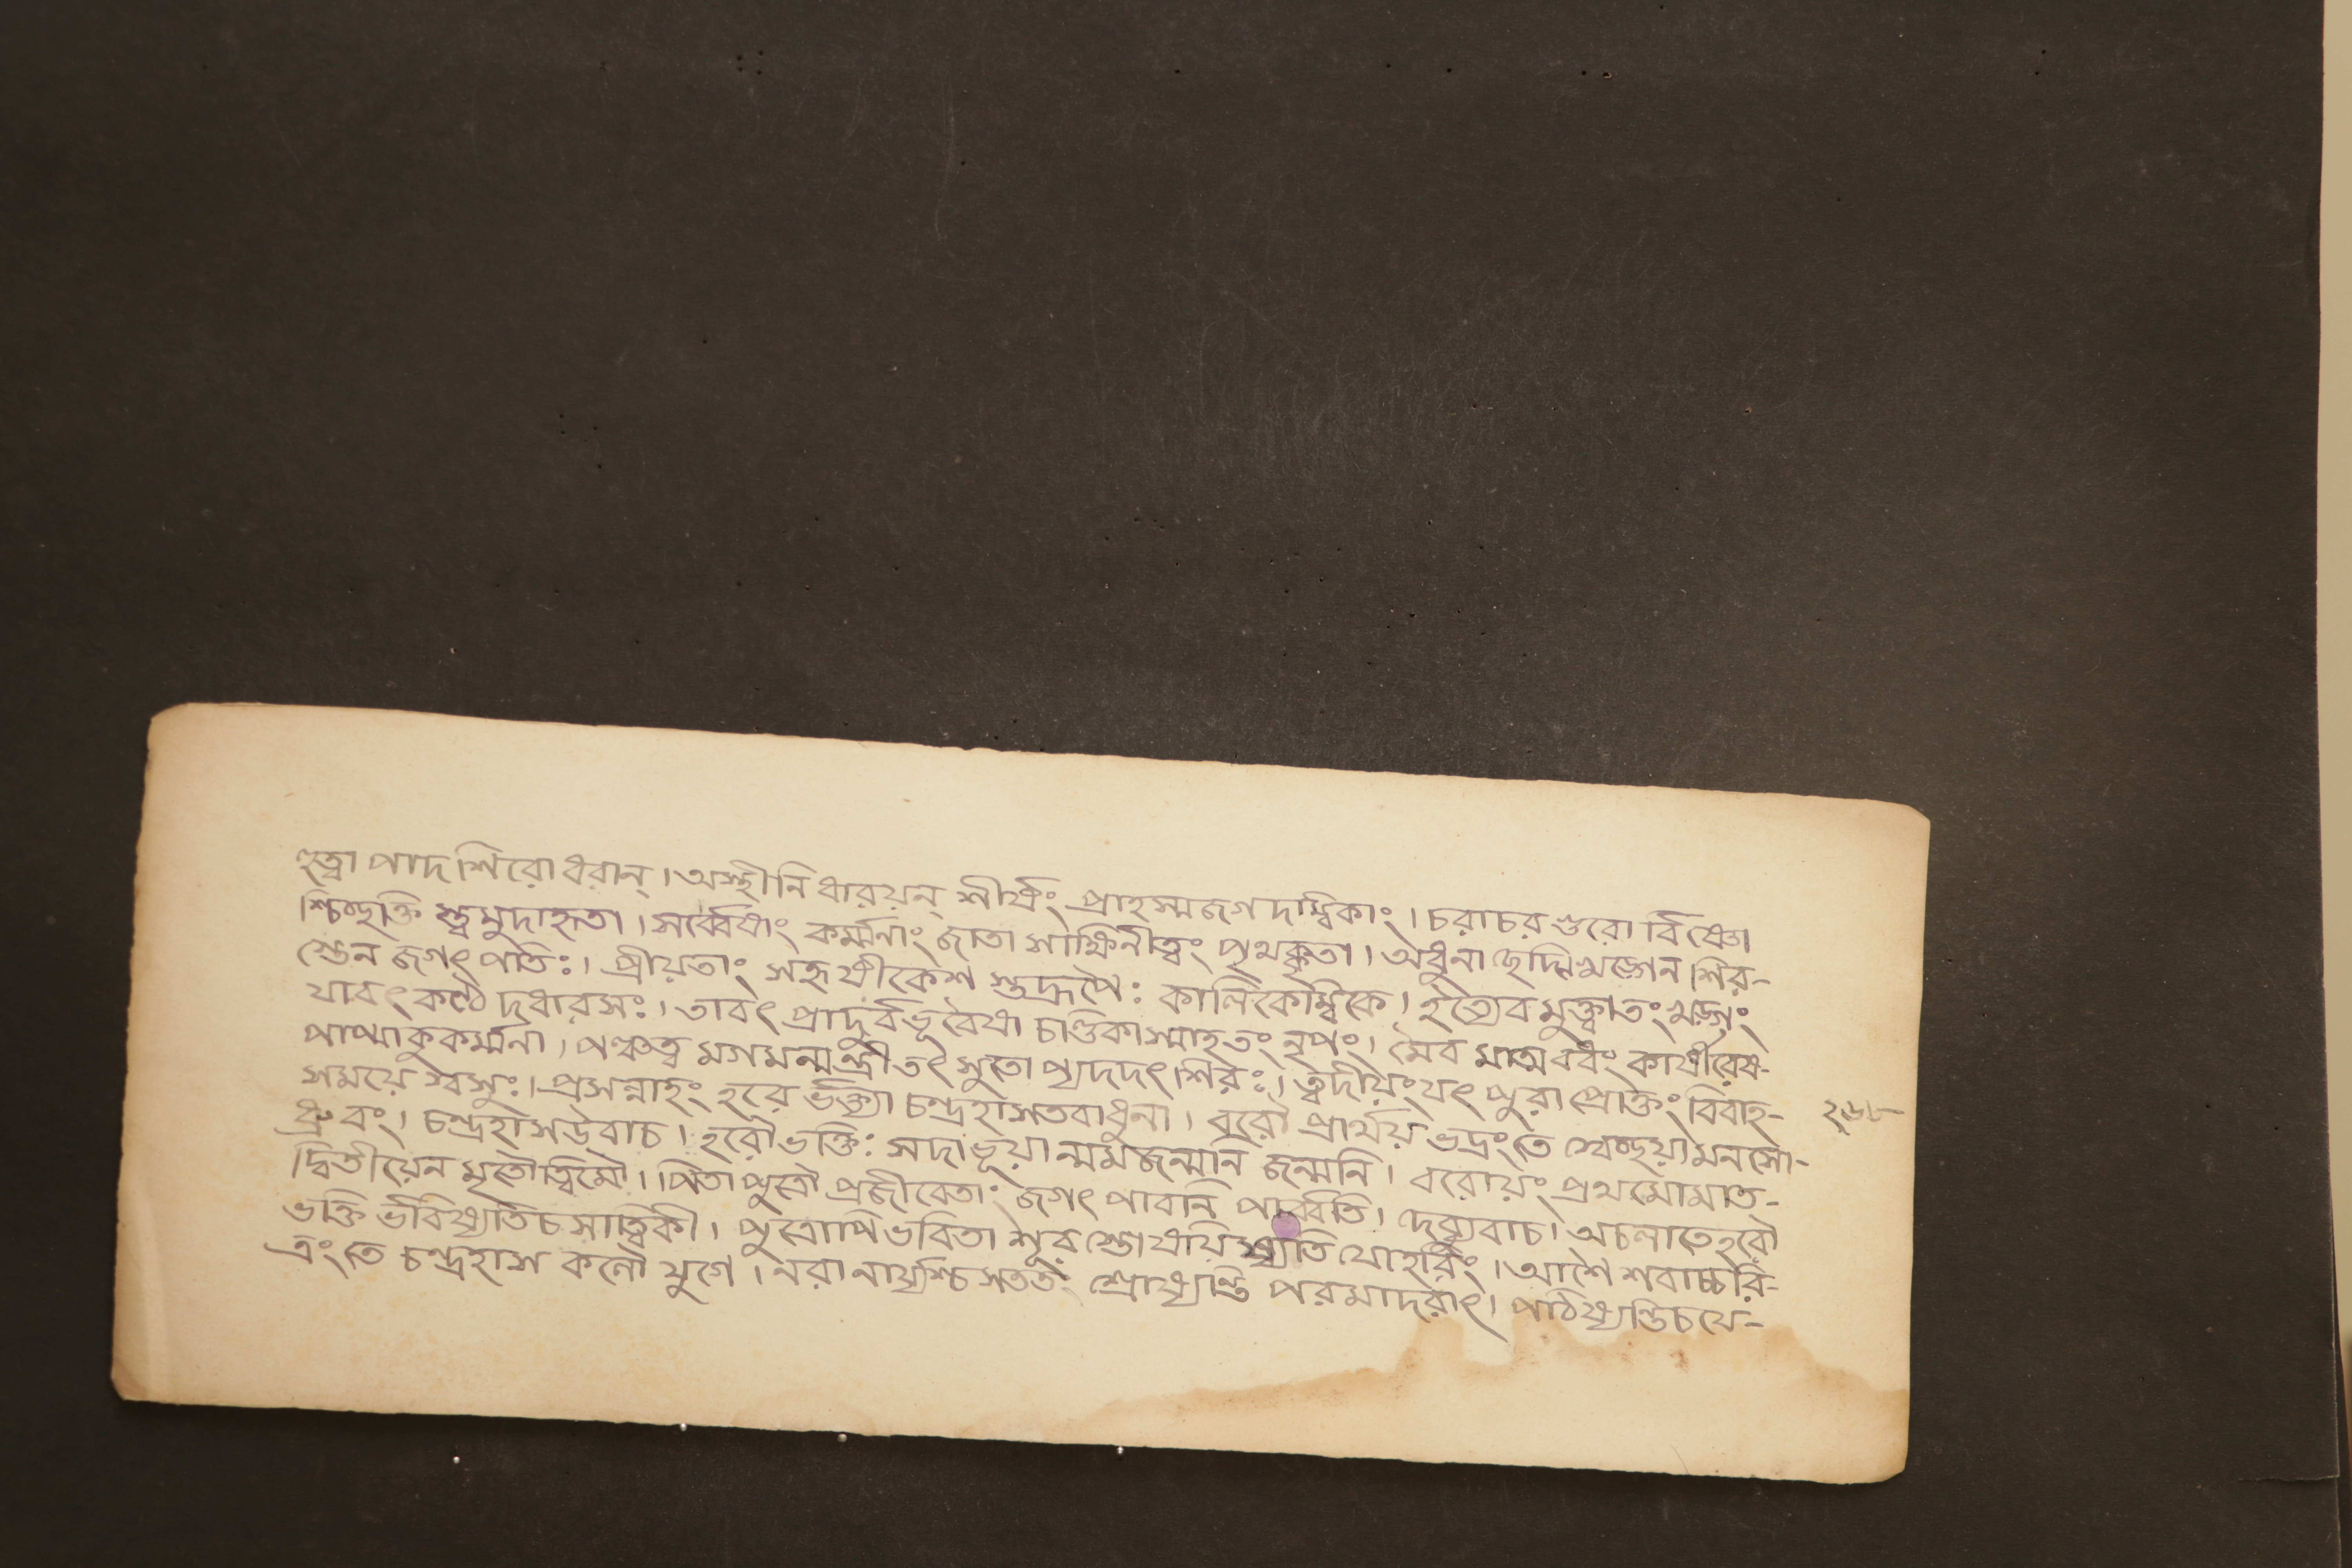 হুত্বা পাদ শিরোধরান্। অস্থীনি ধারয়ন্ শীর্ষং প্রাহস্মজগদম্বিকাং। চরাচর গুরো র্বিষ্ণো
শ্চিচ্ছক্তি স্ত্বমুদাহৃতা। সর্ব্বেষাং কর্ম্মনাং জাতা সাক্ষিনীত্বং পৃথক্কৃতা। অধুনা ছেদ্মি খড়্গেন শির-
স্তেন জগৎ পতিঃ। প্রীয়তাং সহৃষীকেশ স্তদ্রূপৈঃ কালিকেম্বিকে। ইত্যেব মুক্ত্বাতং খড়্গং
যাবৎ কণ্ঠে দধারসঃ। তাবৎ প্রাদুর্বভূবৈষা চাণ্ডিকাস্মাহতং নৃপং। মৈব মাত্মবধং কার্ষীরেষ-
পাপ্মা কুকর্ম্মনা। পঞ্চত্ব মগমন্মন্ত্রী তৎ সুতো প্যদদৎ শিরঃ। ত্বদীয়ং যৎ পুরা প্রোক্তং বিবাহ-
সময়ে শ্বসুঃ। প্রসন্নাহং হরে র্ভক্ত্যা চন্দ্রহাসতবাধুনা। বরৌ প্রার্থয় ভদ্রংতে স্বেচ্ছয়া মনসো-
ধ্রুবং। চন্দ্রহাসউবাচ। হরৌভক্তিঃ সদাভূয়া ন্মমজন্মনি জন্মনি। বরোয়ং প্রথমোমাত-
দ্বিতীয়েন মৃতৌত্বিমৌ। পিতাপুত্রৌ প্রজীবেতাং জগৎ পাবানি পার্ব্বতি। দেব্যুবাচ। অচলাতেহরৌ
ভক্তি র্ভবিষ্যতিচ সাত্ত্বিকী। পুত্রোপি ভবিতা শূর স্তোষয়িষ্যতি যোহরিং। আশৈশবাচ্চরি-
ত্রংতে চন্দ্রহাস কলৌ যুগে। নরা নার্যশ্চ সততং শ্রোষ্যন্তি পরমাদরাৎ। পঠিষ্যন্তিচযে-
২৬৮